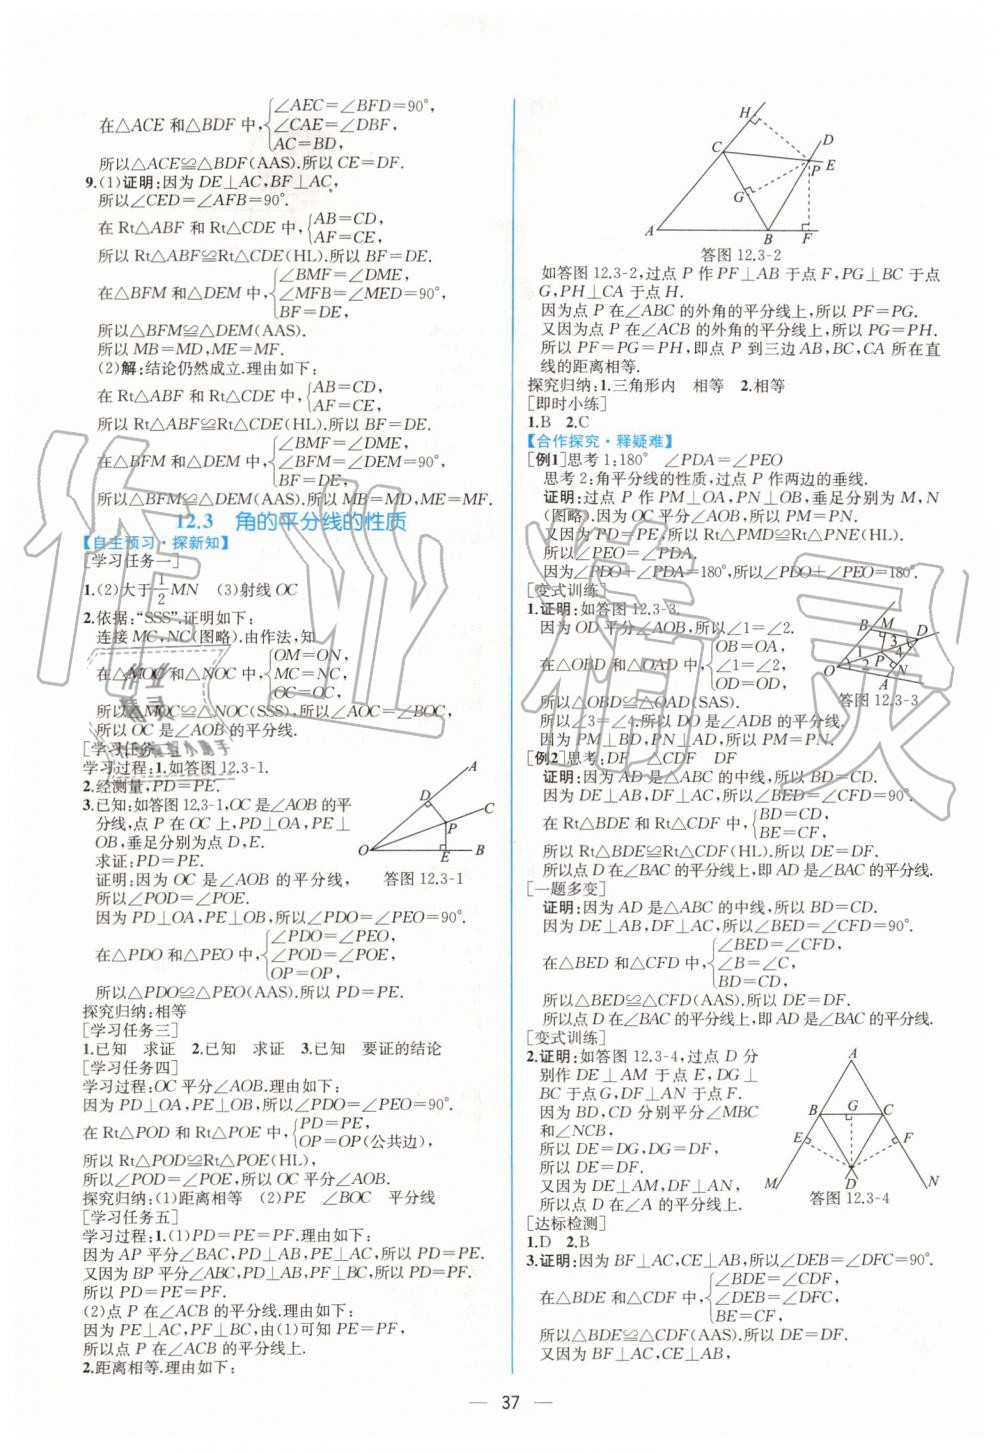 在△ACE 和△BDF 中,{∠AEC=∠BFD=90°,
∠CAE=∠DBF,
AC=BD,
所以△ACE≌△BDF(AAS).所以 CE=DF.
9.(1)证明:因为 DE⊥AC,BF⊥AC,
所以∠CED=∠AFB=90°.
在 Rt△ABF 和 Rt△CDE 中,{AB=CD,
AF=CE,
所以 Rt△ABF≌Rt△CDE(HL).所以 BF=DE.
在△BFM 和△DEM 中,{∠BMF=∠DME,
∠MFB=∠MED=90°,
BF=DE,
所以△BFM≌△DEM(AAS).
所以 MB=MD,ME=MF.
(2)解:结论仍然成立.理由如下:
在 Rt△ABF 和 Rt△CDE 中,{AB=CD,
AF=CE,
所以 Rt△ABF≌Rt△CDE(HL).所以 BF=DE.
在△BFM 和△DEM 中,{∠BMF=∠DME,
∠BFM=∠DEM=90°,
BF=DE,
所以△BFM≌△DEM(AAS).所以 MB=MD,ME=MF.
12.3 角的平分线的性质
【自主预习·探新知】
[学习任务一]
1.(2)大于1/2MN (3)射线 OC
2.依据:“SSS”,证明如下:
连接 MC,NC(图略).由作法,知
在△MOC 和△NOC 中,{OM=ON,
MC=NC,
OC=OC,
所以△MOC≌△NOC(SSS),所以∠AOC=∠BOC,
所以 OC 是∠AOB 的平分线.
[学习任务
学习过程:1.如答图 12.3-1.
2.经测量,PD=PE.
3.已知:如答图 12.3-1,OC 是∠AOB 的平
分线,点 P 在 OC 上,PD⊥OA,PE⊥
OB,垂足分别为点 D,E.
求证:PD=PE.
证明:因为 OC 是∠AOB 的平分线,
所以∠POD=∠POE.
A
D
C
P
O
E
B
答图 12.3-1
因为 PD⊥OA,PE⊥OB,所以∠PDO=∠PEO=90°.
在△PDO 和△PEO 中,{∠PDO=∠PEO,
∠POD=∠POE,
OP=OP,
所以△PDO≌△PEO(AAS).所以 PD=PE.
探究归纳:相等
[学习任务三]
1.已知 求证 2.已知 求证 3.已知 要证的结论
[学习任务四]
学习过程:OC 平分∠AOB.理由如下:
因为 PD⊥OA,PE⊥OB,所以∠PDO=∠PEO=90°.
在 Rt△POD 和 Rt△POE 中,{PD=PE,
OP=OP(公共边),
所以 Rt△POD≌Rt△POE(HL),
所以∠POD=∠POE,所以 OC 平分∠AOB.
探究归纳:(1)距离相等 (2)PE ∠BOC 平分线
[学习任务五]
学习过程:1.(1)PD=PE=PF.理由如下:
因为 AP 平分∠BAC,PD⊥AB,PE⊥AC,所以 PD=PE.
又因为 BP 平分∠ABC,PD⊥AB,PF⊥BC,所以 PD=PF.
所以 PD=PE=PF.
(2)点 P 在∠ACB 的平分线.理由如下:
因为 PE⊥AC,PF⊥BC,由(1)可知 PE=PF,
所以点 P 在∠ACB 的平分线上.
2.距离相等.理由如下:
H
D
C
P
E
G
A
B
F
答图 12.3-2
如答图 12.3-2,过点 P 作 PF⊥AB 于点 F,PG⊥BC 于点
G,PH⊥CA 于点 H.
因为点 P 在∠ABC 的外角的平分线上,所以 PF=PG.
又因为点 P 在∠ACB 的外角的平分线上,所以 PG=PH.
所以 PF=PG=PH,即点 P 到三边 AB,BC,CA 所在直
线的距离相等.
探究归纳:1.三角形内 相等 2.相等
[即时小练]
1.B 2.C
【合作探究·释疑难】
[例1]思考 1:180° ∠PDA=∠PEO
思考 2:角平分线的性质,过点 P 作两边的垂线.
证明:过点 P 作 PM⊥OA,PN⊥OB,垂足分别为 M,N
(图略).因为 OC 平分∠AOB,所以 PM=PN.
又因为 PD=PE,所以 Rt△PMD≌Rt△PNE(HL).
所以∠PEO=∠PDA.
因为∠PDO+∠PDA=180°,所以∠PDO+∠PEO=180°.
[变式训练]
1.证明:如答图 12.3-3.
因为 OD 平分∠AOB,所以∠1=∠2.
在△OBD 和△OAD 中,{OB=OA,
∠1=∠2,
OD=OD,
B
M
D
3
4
1
2
P
N
O
A
答图 12.3-3
所以△OBD≌△OAD(SAS).
所以∠3=∠4,所以 DO 是∠ADB 的平分线.
因为 PM⊥BD,PN⊥AD,所以 PM=PN.
[例2]思考:DF ∠CDF DF
证明:因为 AD 是△ABC 的中线,所以 BD=CD.
因为 DE⊥AB,DF⊥AC,所以∠BED=∠CFD=90°.
在 Rt△BDE 和 Rt△CDF 中,{BD=CD,
BE=CF,
所以 Rt△BDE≌Rt△CDF(HL).所以 DE=DF.
所以点 D 在∠BAC 的平分线上,即 AD 是∠BAC 的平分线.
[一题多变]
证明:因为 AD 是△ABC 的中线,所以 BD=CD.
因为 DE⊥AB,DF⊥AC,所以∠BED=∠CFD=90°.
在△BED 和△CFD 中,{∠BED=∠CFD,
∠B=∠C,
BD=CD,
所以△BED≌△CFD(AAS).所以 DE=DF.
所以点 D 在∠BAC 的平分线上,即 AD 是∠BAC 的平分线.
[变式训练]
2.证明:如答图 12.3-4,过点 D 分
别作 DE⊥AM 于点 E,DG⊥
BC 于点 G,DF⊥AN 于点 F.
因为 BD,CD 分别平分∠MBC
和∠NCB,
所以 DE=DG,DG=DF,
所以 DE=DF.
又因为 DE⊥AM,DF⊥AN,
所以点 D 在∠A 的平分线上.
A
B
G
C
E
F
M
D
N
答图 12.3-4
[达标检测]
1.D 2.B
3.证明:因为 BF⊥AC,CE⊥AB,所以∠DEB=∠DFC=90°.
在△BDE 和△CDF 中,{∠BDE=∠CDF,
∠DEB=∠DFC,
BE=CF,
所以△BDE≌△CDF(AAS).所以 DE=DF.
又因为 BF⊥AC,CE⊥AB,
— 37 —
作业精灵